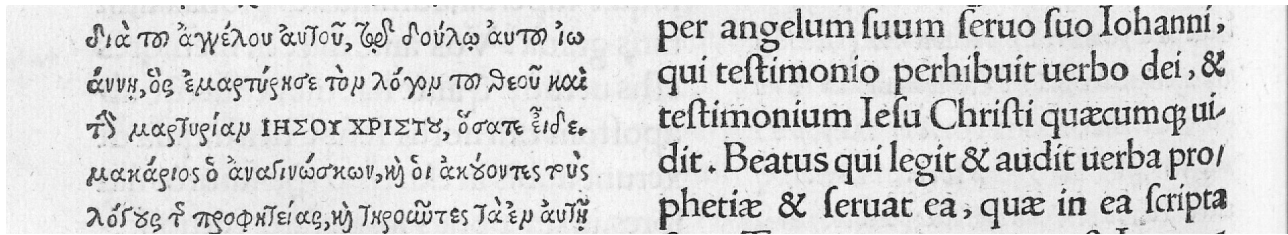 διὰ τοῦ ἀγγέλου ἀυτοῦ, τῷ δούλῳ ἀυτοῦ ἰω
άννῃ, ὃς ἐμαρτύρησε τὸν λόγον τοῦ θεοῦ καὶ
τὴν μαρτυρίαν ΙΗΣΟΥ ΧΡΙΣΤȣ, ὅσατε εἶδε.
μακάριος ὁ ἀναγινώσκων, καὶ ὁι ἀκούοντες τοὺς
λόγους τῆς προφητείας, καὶ τηροῶντες τὰ ἐν ἀυτῇ
per angelum ſuum ſeruo ſuo Iohanni,
qui teſtimonio perhibuit uerbo dei, &
teſtimonium Ieſu Chriſti quæcumqꝫ ui-
dit. Beatus qui legit & audit uerba pro/
phetiæ & ſeruat ea, quæ in ea ſcripta